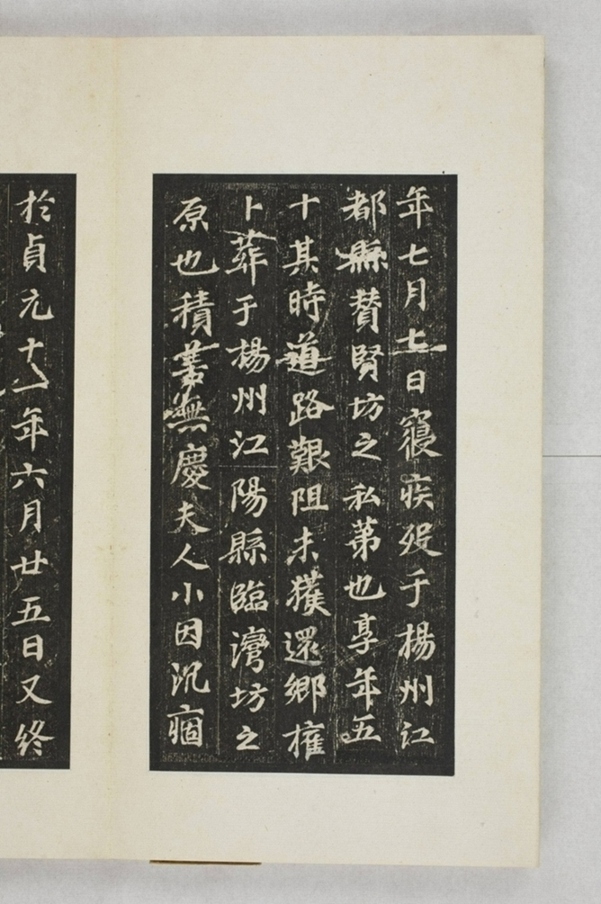 年七月七日寢疾殁于楊州江
都縣賛賢坊之私第也享年五
十其時道路艱阻未獲還鄉權
卜葬于楊州江陽縣臨灣坊之
原也積善無慶夫人小因沉痼
於貞元十一年六月廿五日又終